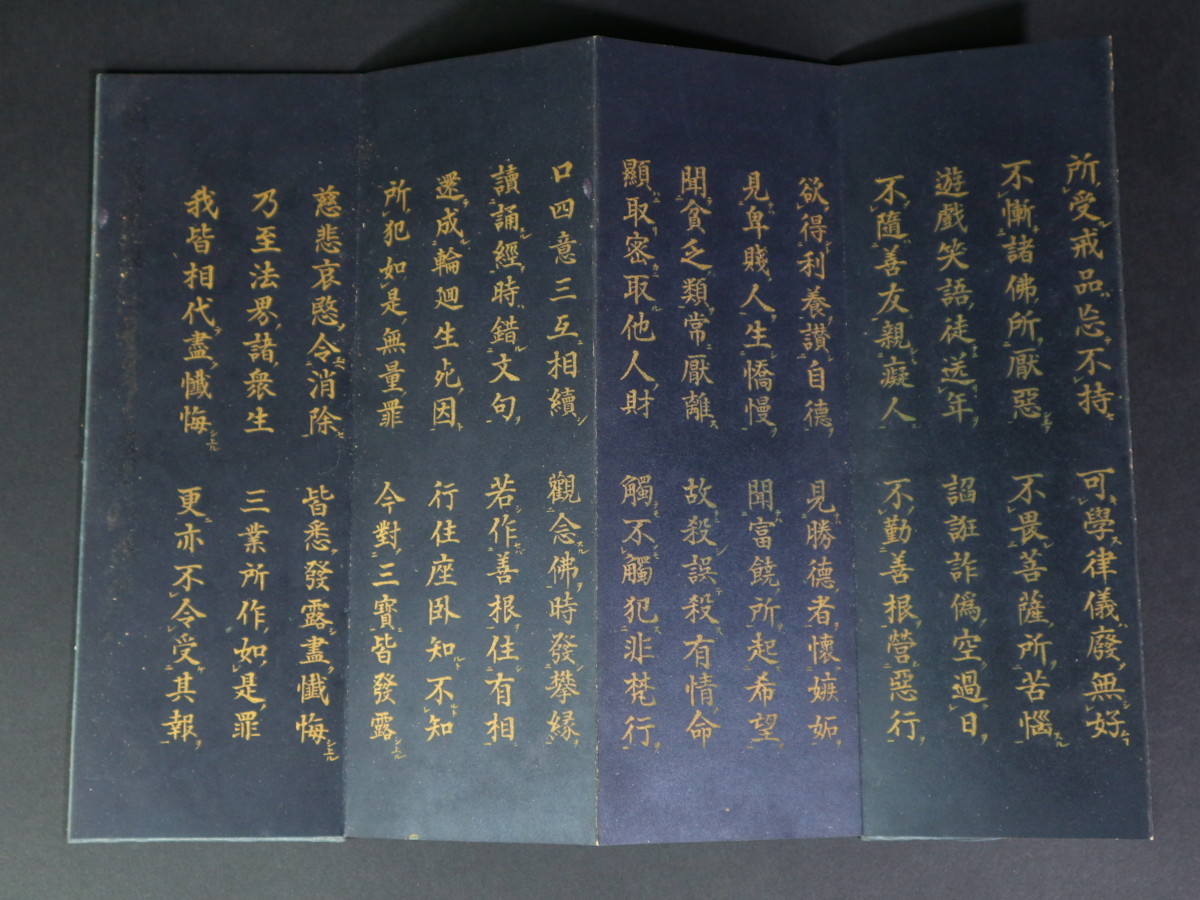 所受戒品忘不持 可學律儀廢無好
不慚諸佛所厭惡 不畏菩薩所苦惱
遊戲笑語徒送年 諂誑詐僞空過日
不隨善友親癡人 不勤善根營惡行
欲得利養讃自德 見勝德者懷嫉妬
見卑賤人生憍慢 聞富饒所起希望
聞貧乏類常厭離 故殺誤殺有情命
顯取密取他人財 觸不觸犯非梵行
口四意三互相續 觀念佛時發攀緣
讀誦經時錯文句 若作善根住有相
還成輪廻生死因 行住座卧知不知
所犯如是無量罪 今對三寶皆發露
慈悲哀愍令消除 皆悉發露盡懺悔
乃至法界諸衆生 三業所作如是罪
我皆相代盡懺悔 更亦不令受其報